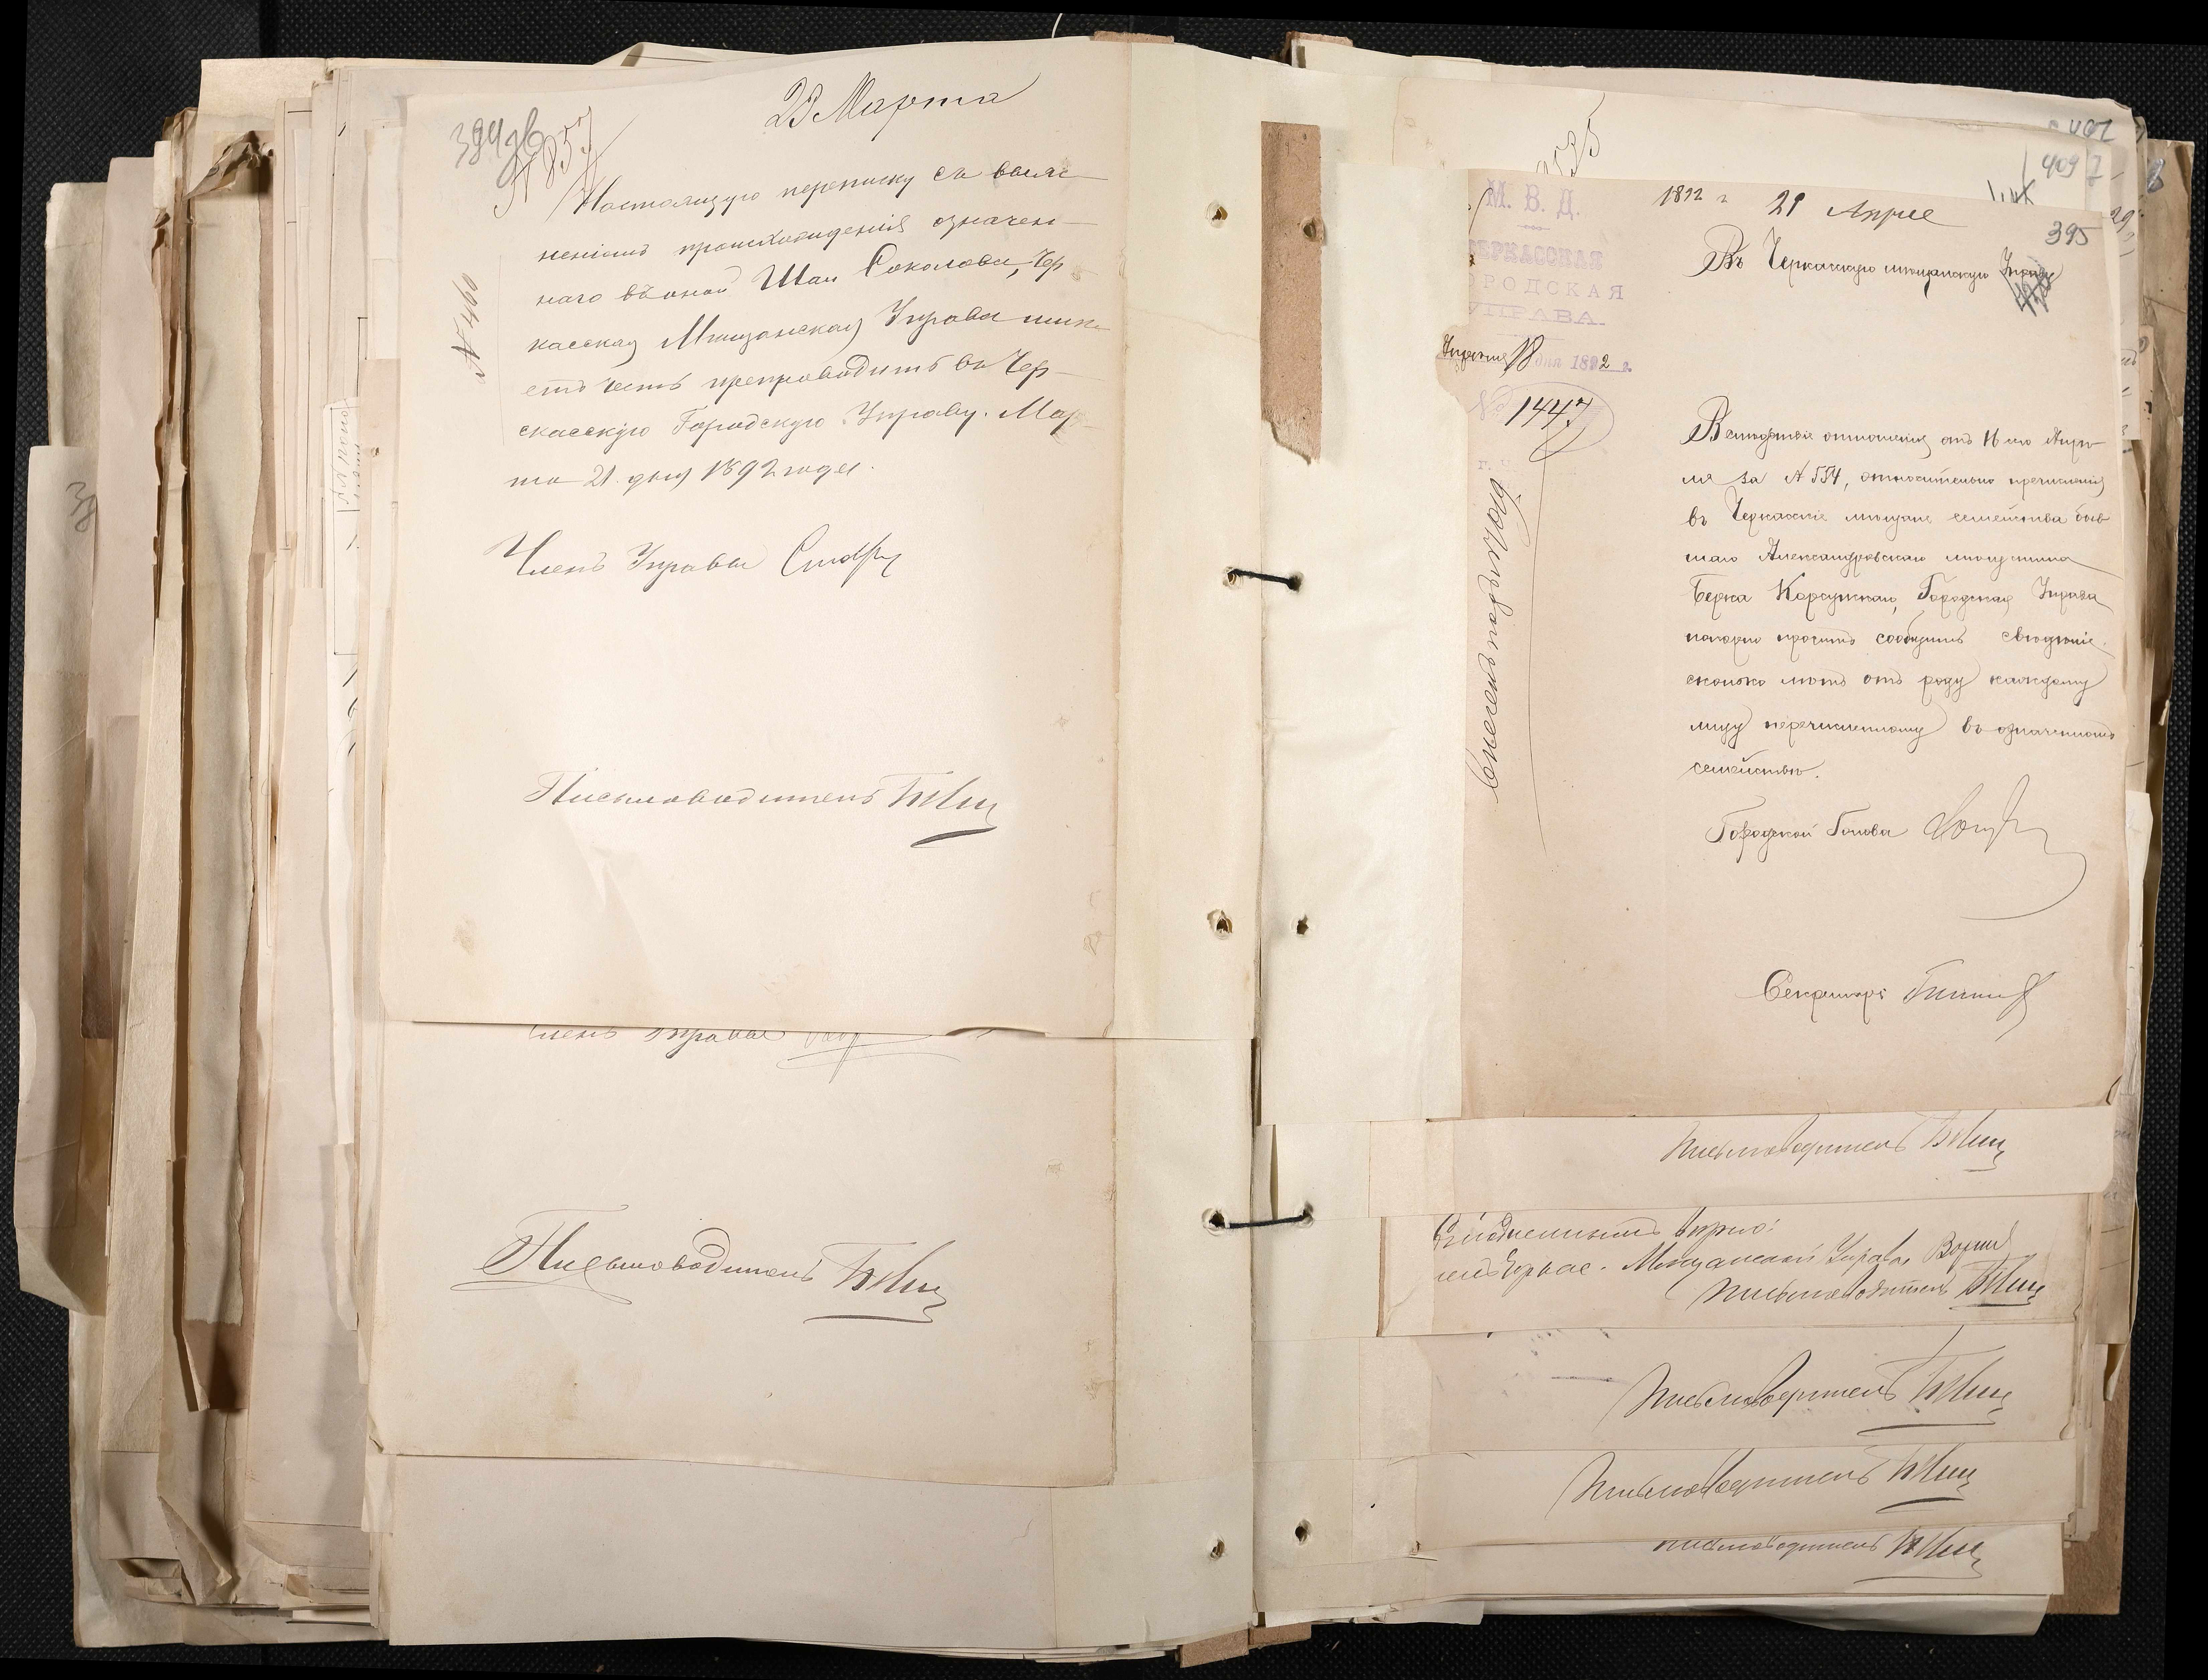 23 Марта
394 об
№ 857
Настоящую переписку съ выяс-
неніемъ происхожденія означен-
наго въ оной Шаи Соколова, Чер
касская Мѣщанская Управа имѣ-
етъ честь препроводить въ Чер-
скасскую Городскую Управу. Мар-
та 21 дня 1892 года.
№ 460
Членъ Управы
Письмоводитель
Членъ Управы
Письмоводитель
407
409
1892 г 21 Апрѣля
395
М. В. Д.
ЧЕРКАССКАЯ
ГОРОДСКАЯ
УПРАВА.
Апрѣля 18 дня 1892 г.
№ 1447
Въ Черкасскую мѣщанскую Управу
Вслѣдствіе отношенія отъ 16 сего Апрѣ-
ля за № 554, относительно причисленія
въ Черкасскіе мѣщане семейства быв-
шаго Александровскаго мѣщанина
Берка Корсунскаго, Городская Управа
покорно проситъ сообщить свѣдѣніе.
сколько лѣтъ отъ роду каждому
лицу перечисленному въ означенномъ
семействѣ.
Городской Голова
Секретарь
Письмоводитель
Мѣщанской Управы
Письмоводитель
Письмоводитель
Письмоводитель
Письмоводитель